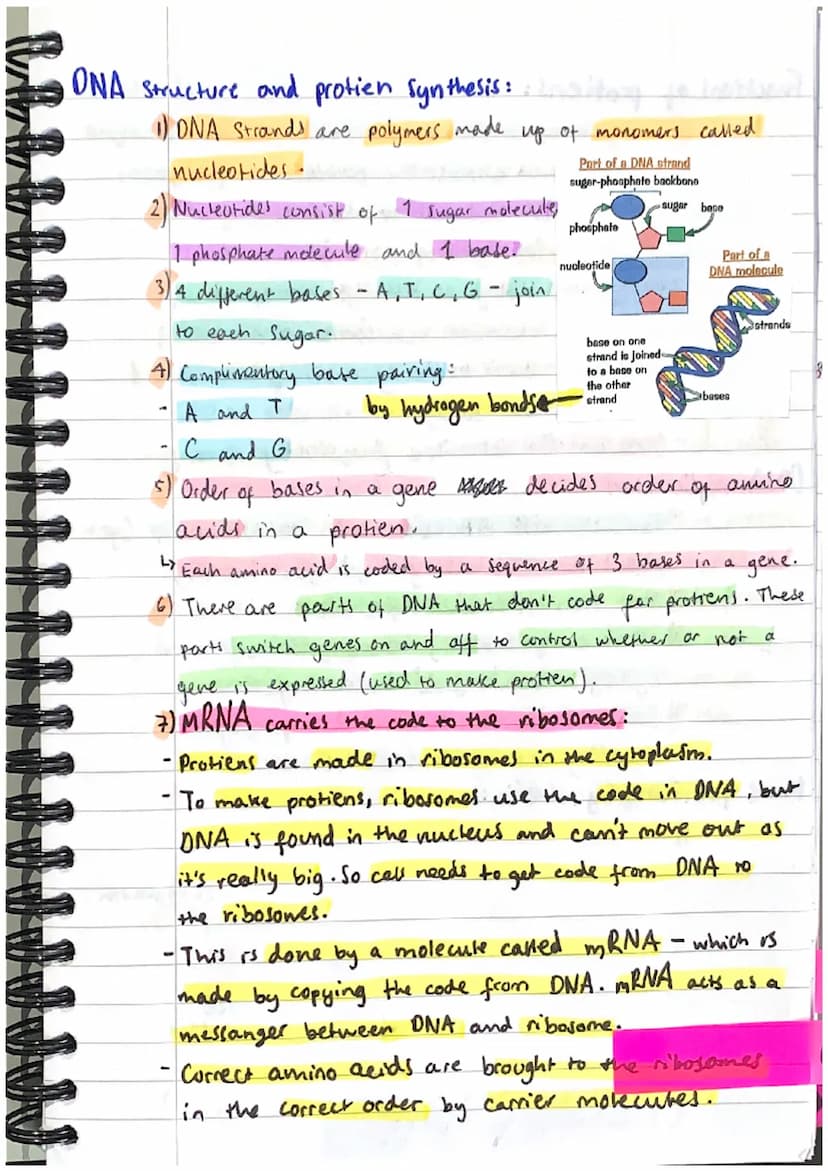 DNA structure and protien synthesis:
1) DNA strands are polymers made up of monomers called
nucleotides.
2) Nucleotides consist of 1 sugar molecule,
1 phosphate molecule and 1 base.
3) 4 different bases - A, T, C, G - join
to each sugar.
4) Complimentary base pairing:
- A and T
by hydrogen bonds
- C and G
Part of a DNA strand
sugar-phosphate backbone
sugar
base
phosphate
nucleotide
Part of a
DNA molecule
strands
base on one
strand is joined
to a base on
the other
strand
bases
5) Order of bases in a gene decides order of amino
acids in a protien.
↳ Each amino acid is coded by a sequence of 3 bases in a gene.
6) There are parts of DNA that don't code for protiens. These
parts switch genes on and off to control whether or not a
gene is expressed (used to make protien).
7) MRNA carries the code to the ribosomes:
- Protiens are made in ribosomes in the cytoplasm.
- To make protiens, ribosomes use the code in DNA, but
DNA is found in the nucleus and can't move out as
it's really big. So cell needs to get code from DNA to
the ribosomes.
- This is done by a molecule called mRNA - which is
made by copying the code from DNA. mRNA acts as a
messanger between DNA and ribosome.
- Correct amino acids are brought to the ribosomes
in the correct order by carrier molecules.